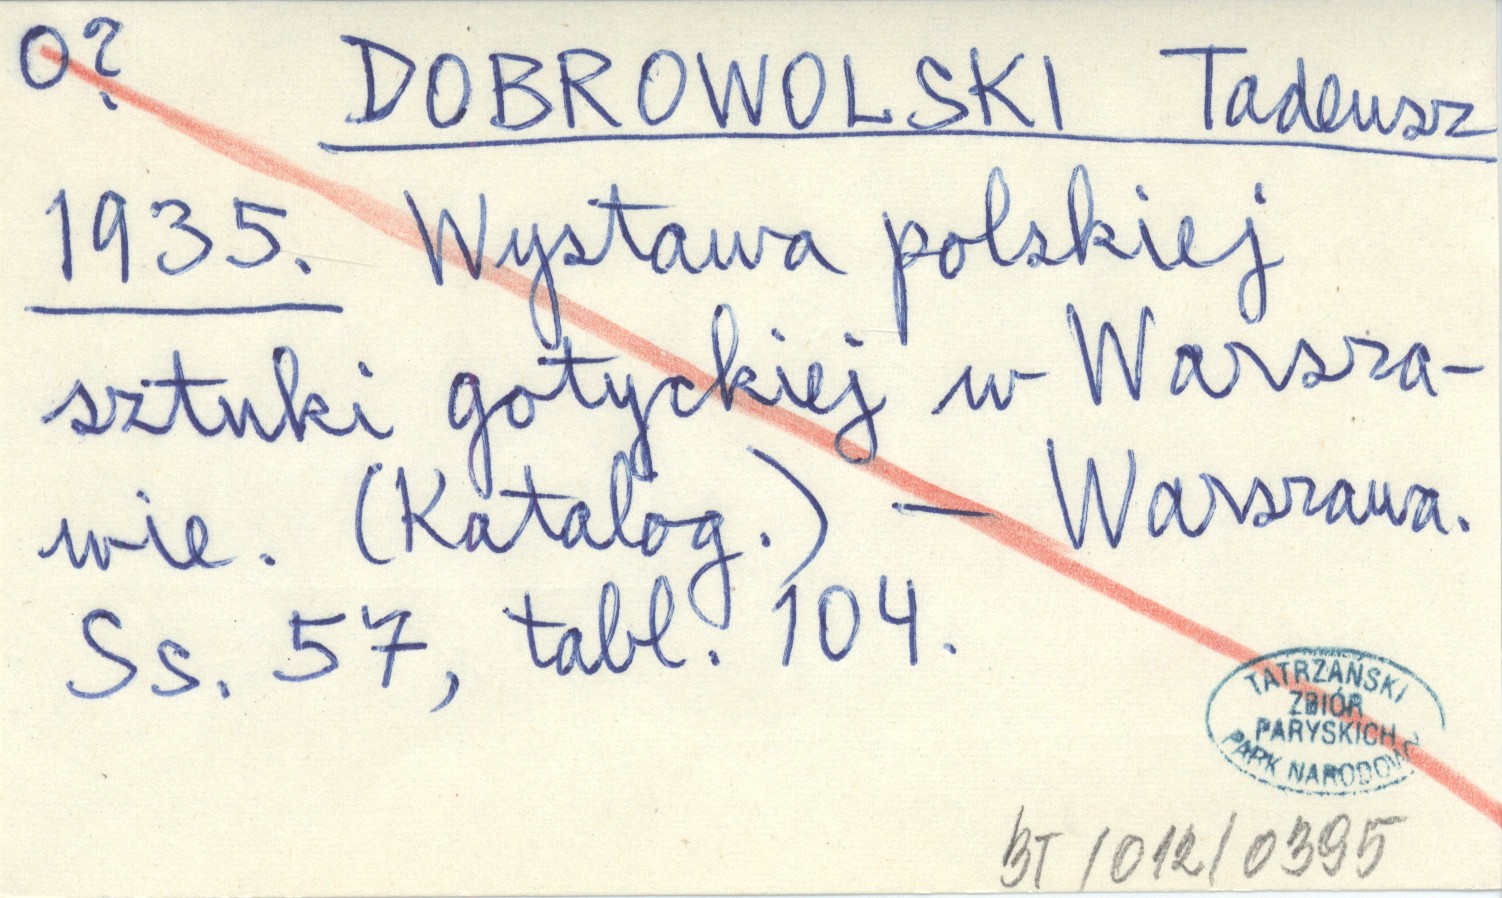 o?
DOBROWOLSKI Tadeusz
1935. Wystawa polskiej
sztuki gotyckiej w Warsza-
wie. (Katalog.) — Warszawa.
Ss. 57, tabl. 104.
TATRZAŃSKI
ZBIÓR
PARYSKICH
PARK NARODOWY
BT/012/0395